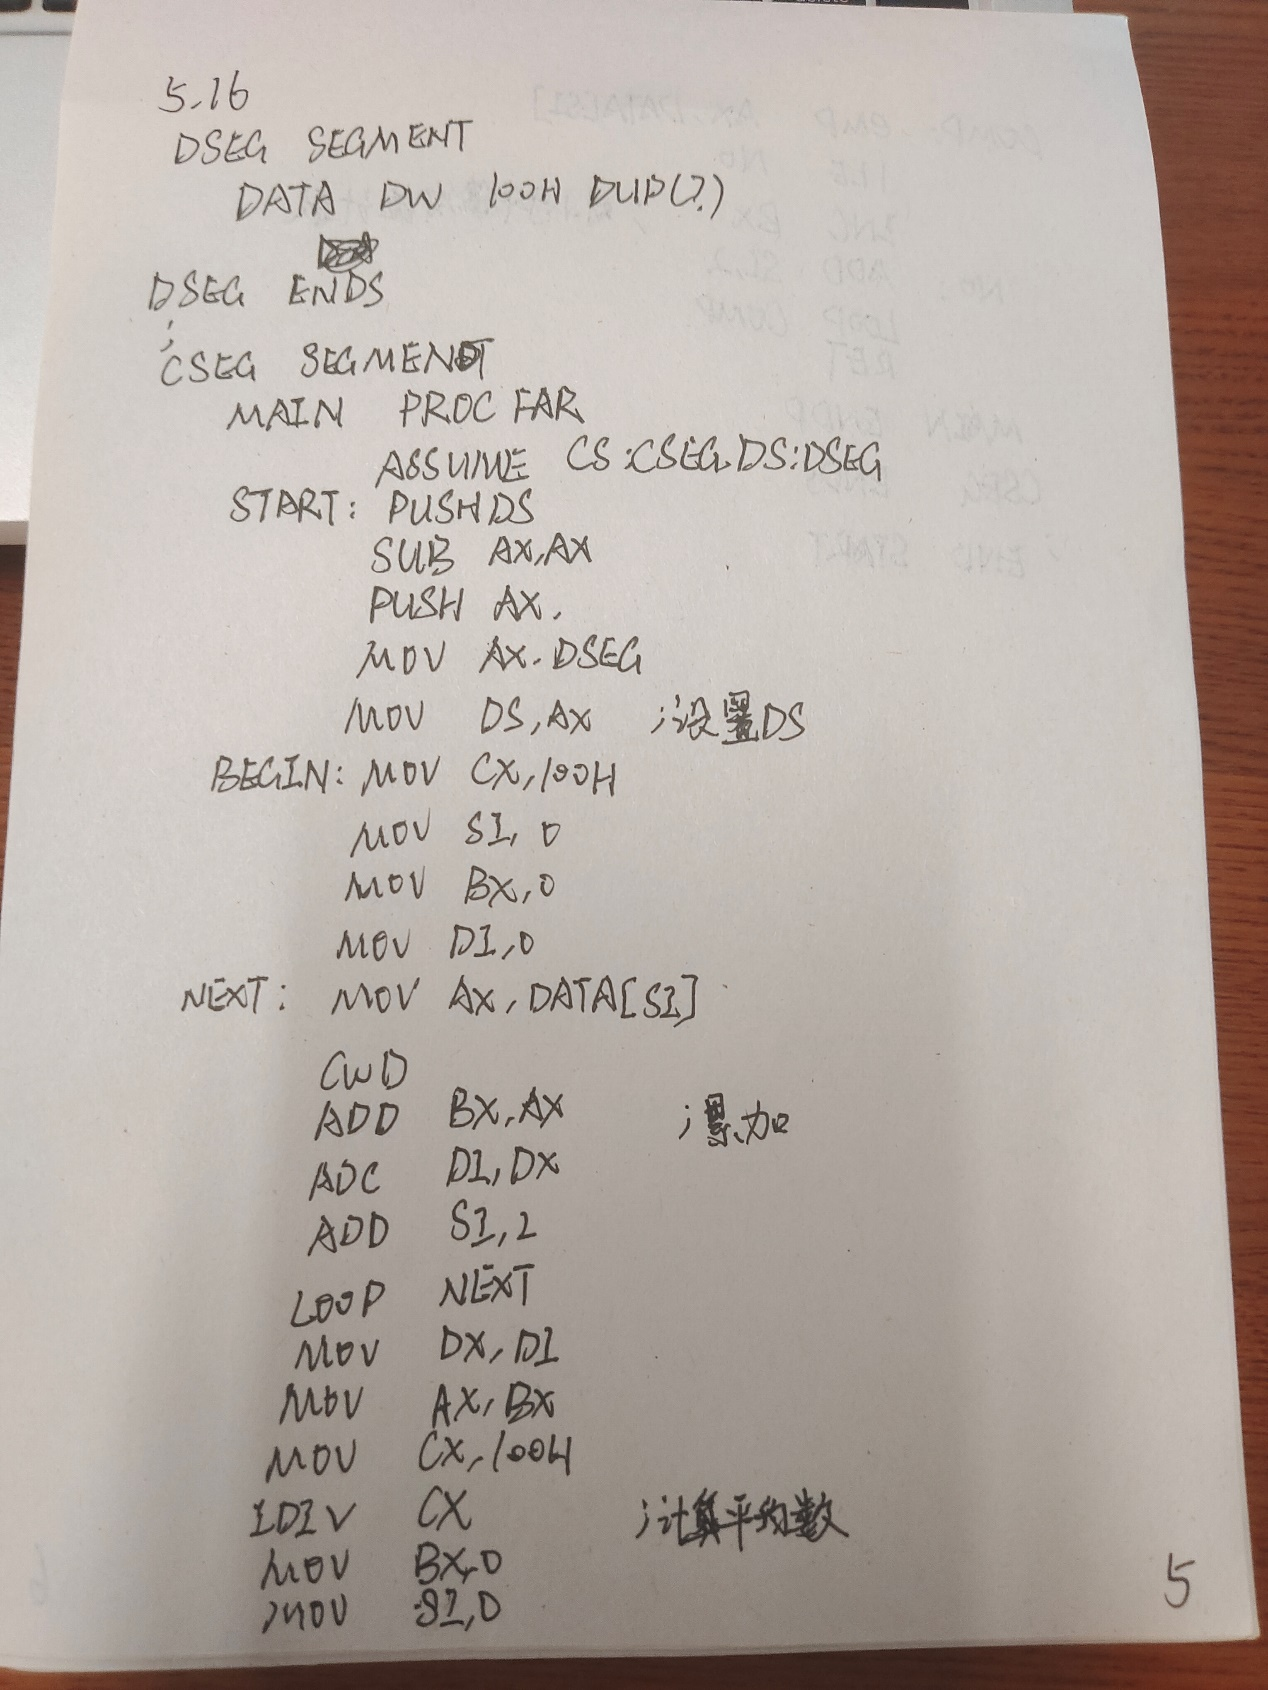 5.16
DSEG SEGMENT
DATA DW 100H DUP(?)
DSEG ENDS
;
CSEG SEGMENT
MAIN PROC FAR
ASSUME CS:CSEG,DS:DSEG
START: PUSH DS
SUB AX,AX
PUSH AX
MOV AX,DSEG
MOV DS,AX ;设置DS
BEGIN: MOV CX,100H
MOV SI,0
MOV BX,0
MOV DI,0
NEXT: MOV AX,DATA[SI]
CWD
ADD BX,AX ;累加
ADC DI,DX
ADD SI,2
LOOP NEXT
MOV DX,DI
MOV AX,BX
MOV CX,100H
IDIV CX ;计算平均数
MOV BX,0
MOV SI,0
5